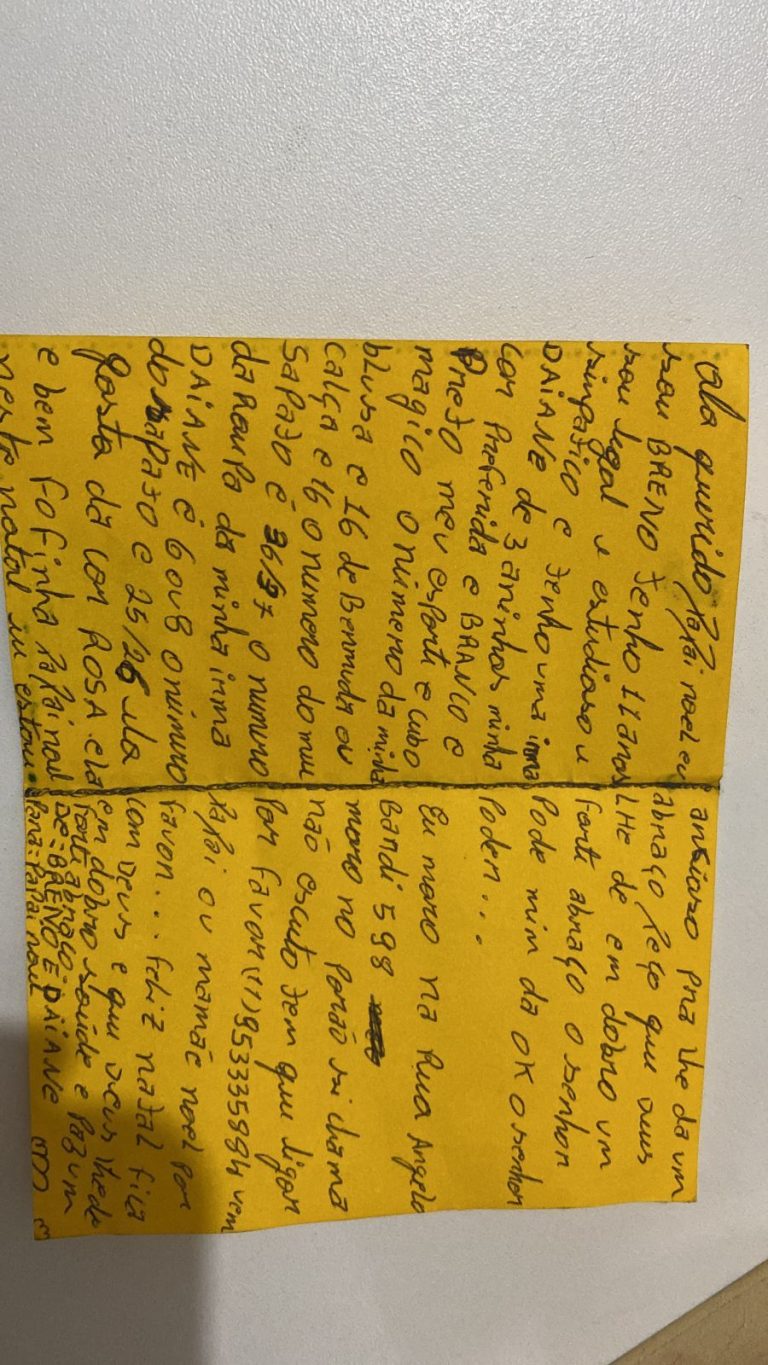 Ola querido Papai noel eu
sou BRENO Tenho 11 anos
sou legal e estudioso e
simpatico e Tenho uma irma
DAIANE de 3 aninhos minha
Cor Preferida e BRANCO e
Preto meu esporte e cubo
magico o numero da minha
blusa e 16 de Bermuda ou
calça e 16 o numero do meu
sapato é 36/37 o numero
da Roupa da minha irma
DAIANE é 6 ou 8 o numero
do sapato e 25/26 ela
gosta da cor ROSA ela
e bem Fofinha Papai noel
neste natal eu estou
ansioso pra lhe da um
abraço Peço que deus
LHe de em dobro um
forte abraço o senhor
Pode mim da OK o senhor
Poden...
Eu moro na Rua Angelo
Bandi 598
moro no Porão se chama
não escuto tem que ligar
Por favor (11) 953335994 vem
Papai ou mamãe noel por
favor... feliz natal fica
com Deus e que Deus lhe de
em dobro saúde e Paz um
forte abraço
DE = BRENO E DAIANE
Para = Papai noel